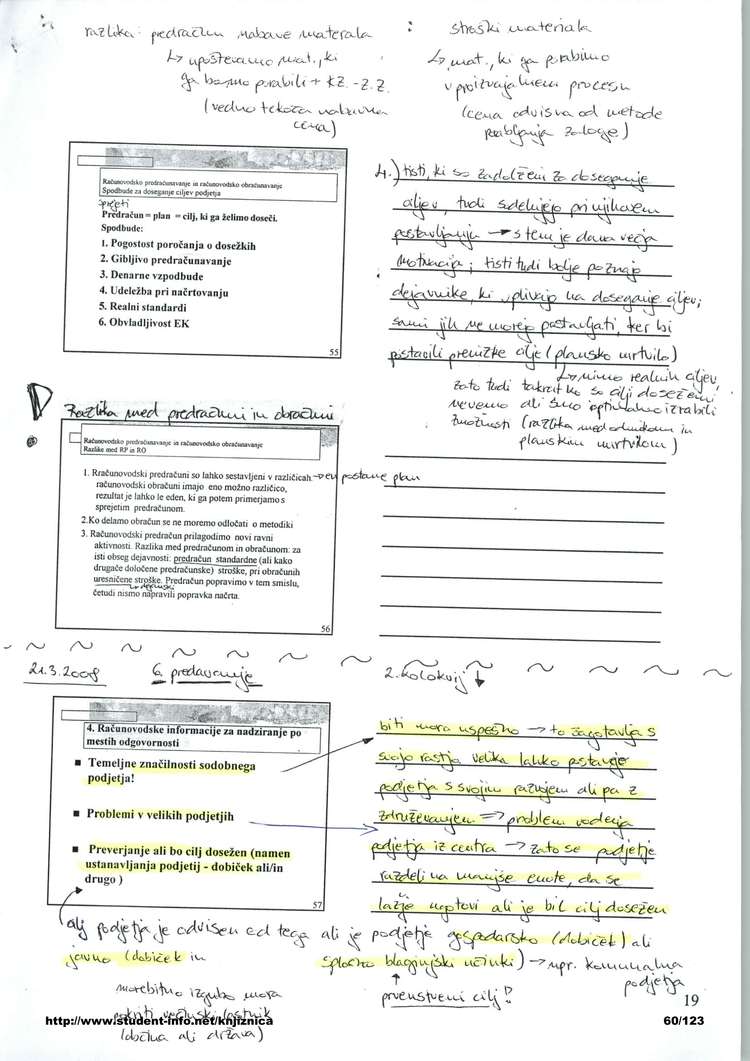 razlika: predračun nabave materala : stroški materiala
↳ upoštevamo mat., ki
ga bomo porabili + KZ. - Z.Z.
(vedno tekoča nabavna
cena)
↳ mat., ki ga porabimo
v proizvajalnem procesu
(cena odvisna od metode
porabljanja zaloge)
Računovodsko predračunavanje in računovodsko obračunavanje
Spodbude za doseganje ciljev podjetja
sprejeti
Predračun = plan = cilj, ki ga želimo doseči.
Spodbude:
1. Pogostost poročanja o dosežkih
2. Gibljivo predračunavanje
3. Denarne vzpodbude
4. Udeležba pri načrtovanju
5. Realni standardi
6. Obvladljivost EK
55
4.) tisti, ki so zadolženi za doseganje
ciljev, tudi sodelujejo pri njihovem
postavljanju → s tem je dana večja
motivacija; tisti tudi bolje poznajo
dejavnike, ki vplivajo na doseganje ciljev;
sami jih ne morejo postavljati, ker bi
postavili prenizke cilje (plansko mrtvilo)
↳ nimo realnih ciljev,
zato tudi takrat ko so cilji doseženi
nevemo ali smo optimalno izrabili
zmožnosti (razlika med odmikom in
planskim mrtvilom)
Razlika med predračuni in obračuni
Računovodsko predračunavanje in računovodsko obračunavanje
Razlike med RP in RO
1. Rračunovodski predračuni so lahko sestavljeni v različicah → en postane plan
računovodski obračuni imajo eno možno različico,
rezultat je lahko le eden, ki ga potem primerjamo s
sprejetim predračunom.
2.Ko delamo obračun se ne moremo odločati o metodiki
3. Računovodski predračun prilagodimo novi ravni
aktivnosti. Razlika med predračunom in obračunom: za
isti obseg dejavnosti: predračun standardne (ali kako
drugače določene predračunske) stroške, pri obračunih
uresničene stroške. Predračun popravimo v tem smislu,
četudi nismo napravili popravka načrta.
56
21.3.2008 6. predavanje 2. kolokvij ↓
4. Računovodske informacije za nadziranje po
mestih odgovornosti
▪ Temeljne značilnosti sodobnega
podjetja!
▪ Problemi v velikih podjetjih
▪ Preverjanje ali bo cilj dosežen (namen
ustanavljanja podjetij - dobiček ali/in
drugo )
57
biti mora uspešno → to zagotavlja s
svojo rastjo velika lahko postanejo
podjetja s svojim razvojem ali pa z
združevanjem ⇒ problem vodenja
podjetja iz centra → zato se podjetje
razdeli na manjše enote, da se
lažje ugotovi ali je bil cilj dosežen
cilj podjetja je odvisen od tega ali je podjetje gospodarsko (dobiček) ali
javno (dobiček in splošno blaginjski učinki) → npr. komunalna
podjetja
↑
prvenstveni cilj!
morebitno izgubo mora
pokriti večinski lastnik
(občina ali država)
19
http://www.student-info.net/knjiznica
60/123